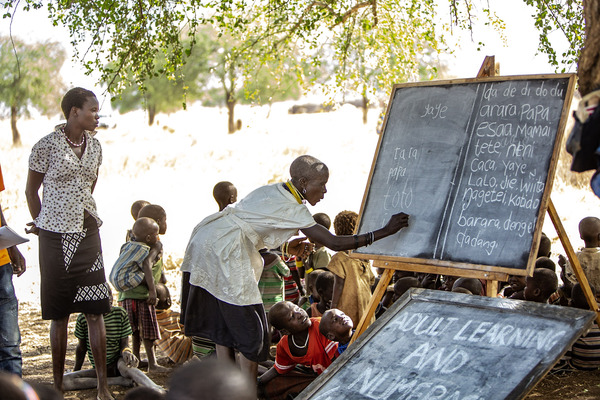 yaye
ta la
papa
toto
da de di do du
arara papa
esaa mamai
tete neni
caca yaye
Lalo, die wiito
gagetel kobdo
barara dengel
gadang
ADULT LEARNING
AND
NUMERA